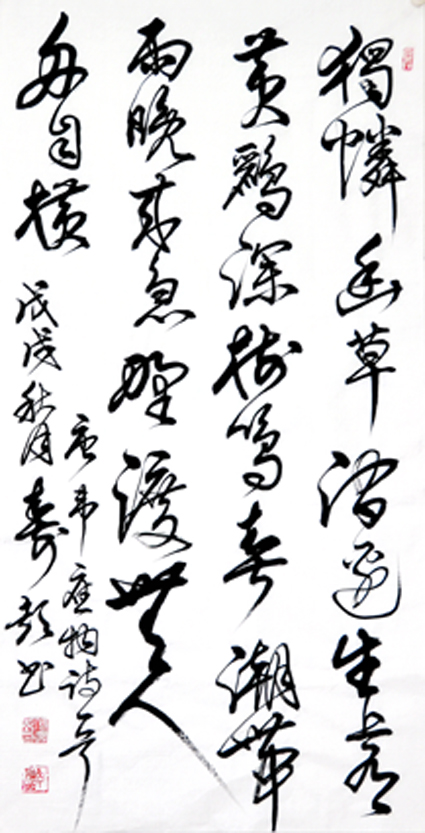 獨憐幽草澗邊生上有
黃鸝深樹鳴春潮帶
雨晚來急野渡無人
舟自橫
唐韋應物詩一首
戊戌秋月壽彭书